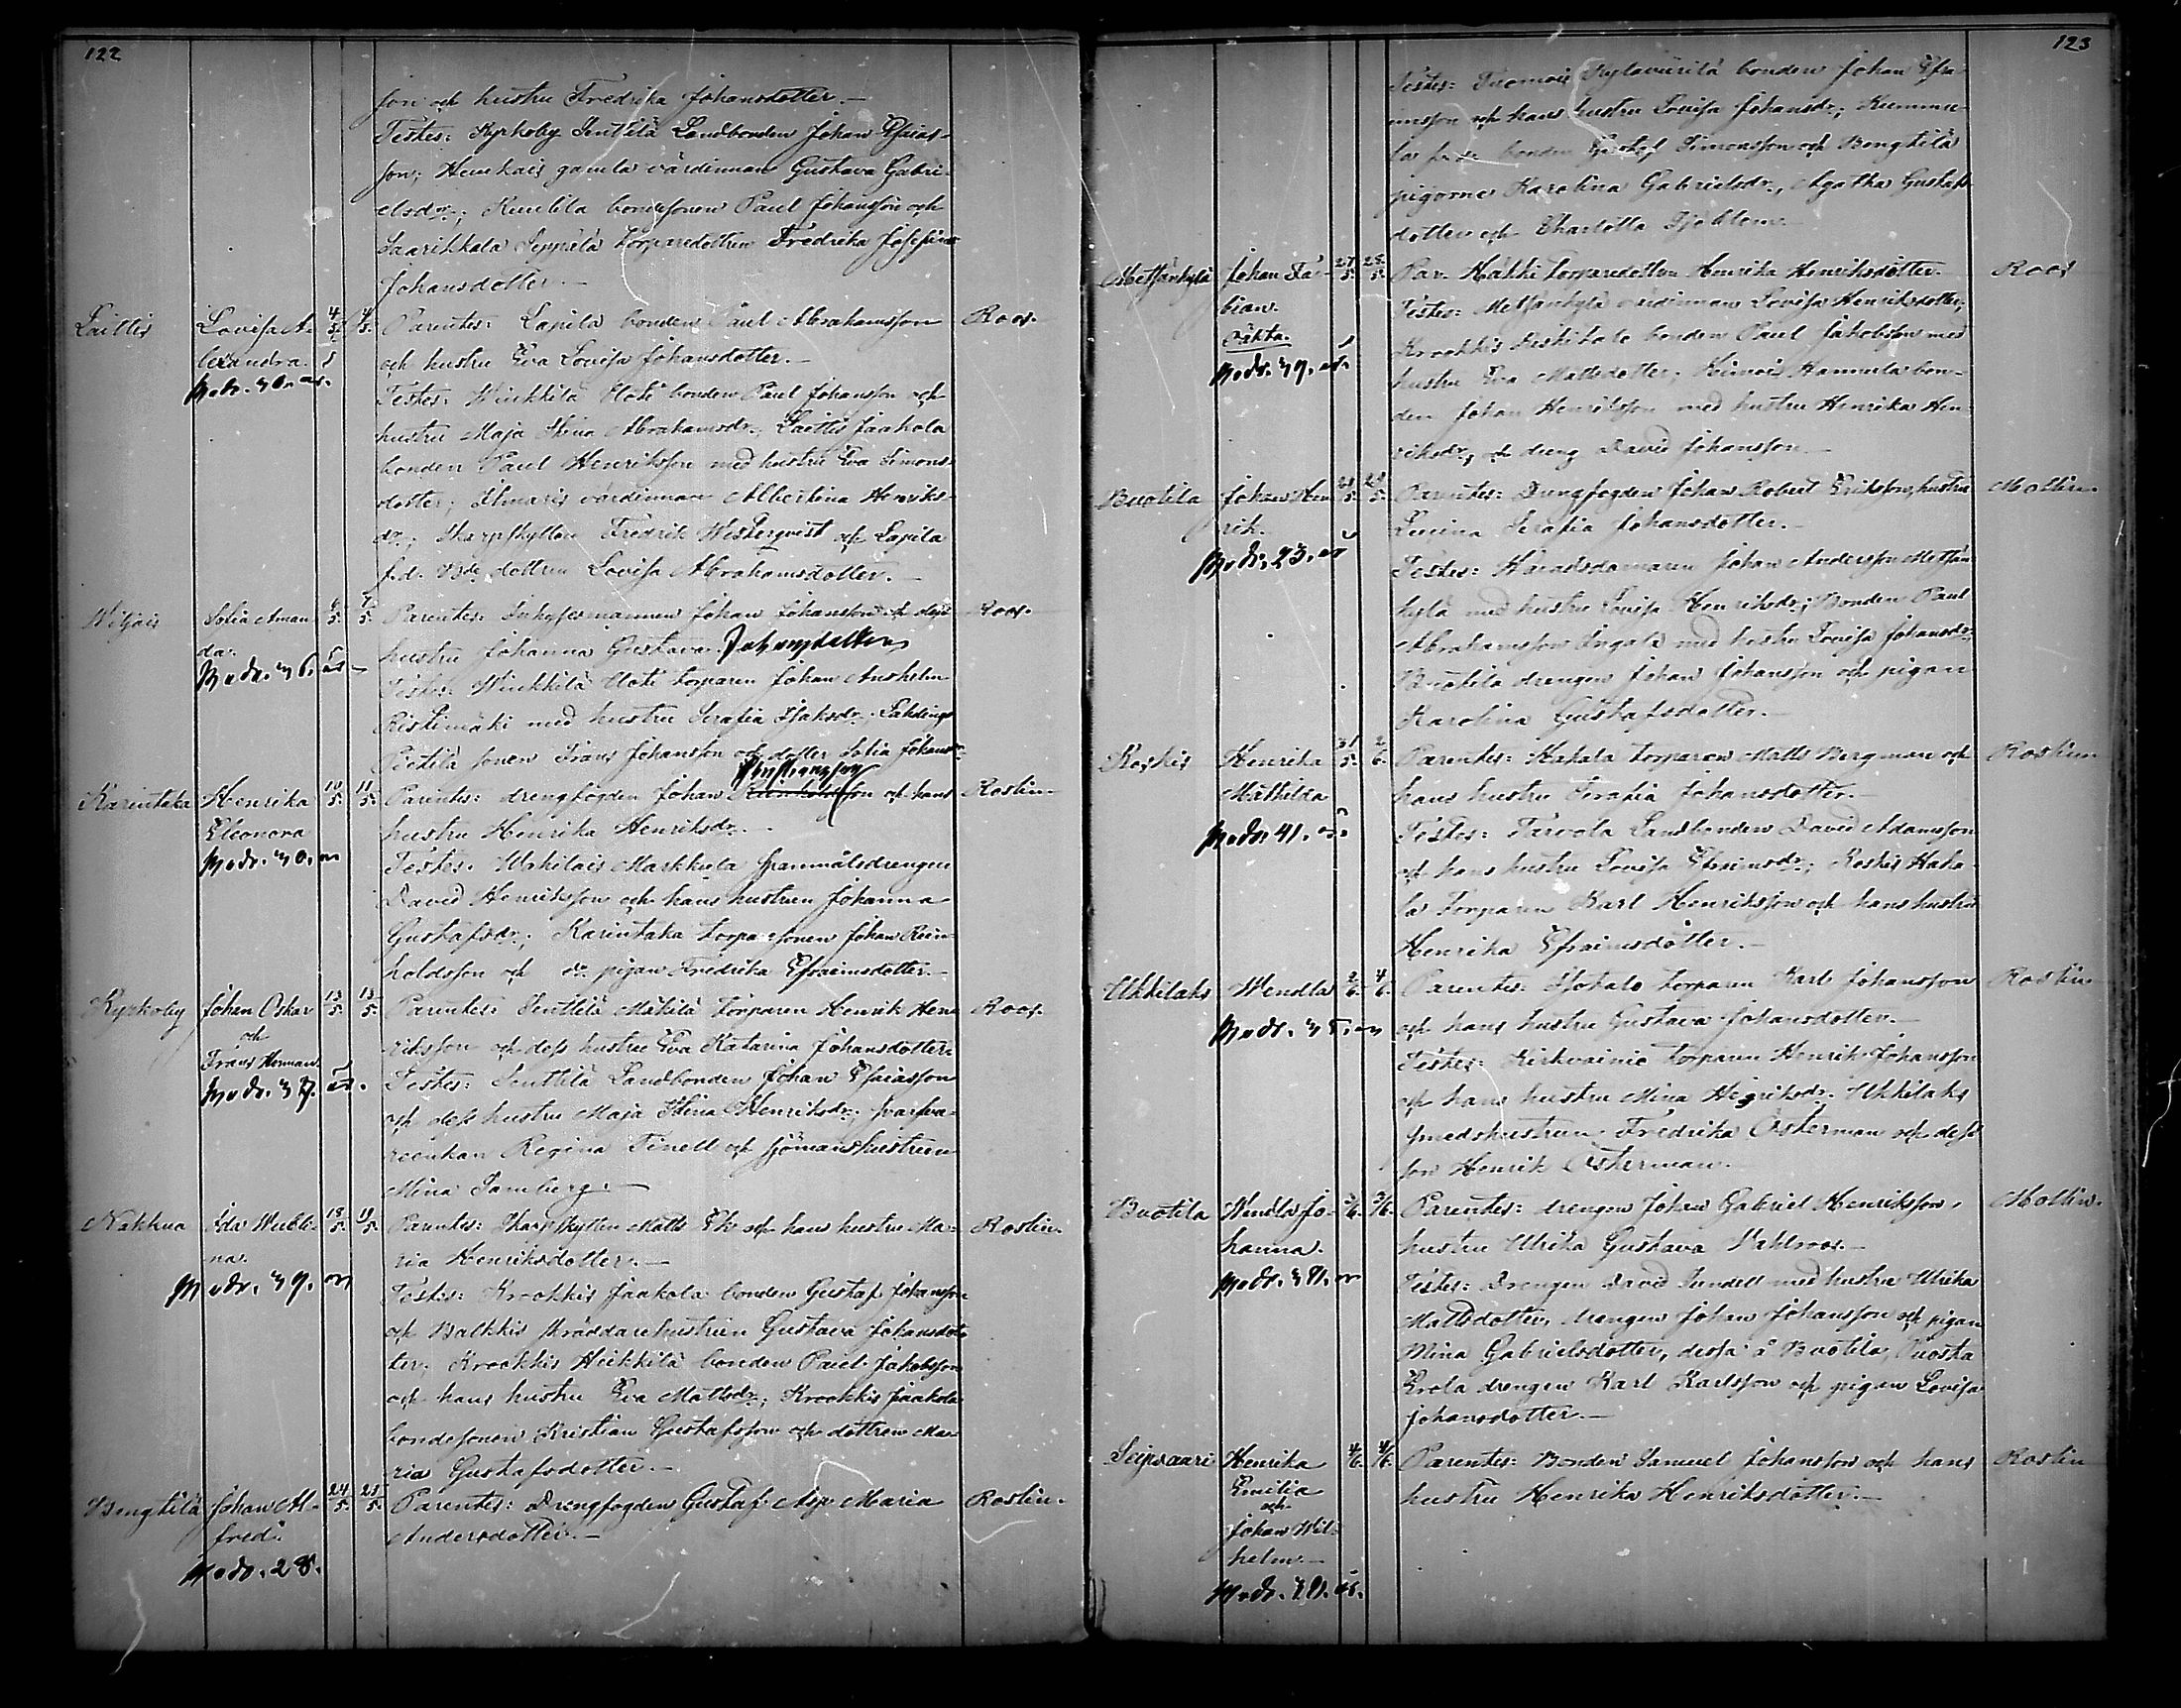 122
son och hustru Fredrika Johansdotter.—
Testes: Kyrkoby Senttilä Landbonden Johan Esaias-
son; gamla värdinnan Gustava Gabri-
elsdr.; Kuntila bondesonen Paul Johansson och
Saarikkala Seppälä torparedottren Fredrika Josefina
Johansdotter.—
Laittis Lovisa A- 4/5. 4/5. Parentes: Lapila bonden Paul Abrahamsson Roos.
lexandra. och hustru Eva Lovisa Johansdotter.—
Modr. 30. år. Testes: Winkkilä Uoti bonden Paul Johansson och
hustru Maja Stina Abrahamsdr.; Laittis Jaakola
bonden Paul Henriksson med hustru Eva Simons-
dotter; Ilmaris värdinnan Albertina Henriks-
dr.; Skarpskytten Fredrik Westerqvist och Lapila
f.d. dottren Lovisa Abrahamsdotter.—
Wiljais Sofia Aman- 6/5. 7/5. Parentes: Inhysesmannen Johan Johansson och dess Roos.
da. hustru Johanna Gustava Johansdotter
Modr. 36. år Testes: Winkkilä Uoti torparen Johan Anshelm
Ristimäki med hustru Serafia Isaksdr.
Pietilä sonen Frans Johansson och dotter Sofia Johansdr.
Karintaka Henrika 10/5. 11/5. Parentes: drengfogden Johan och hans Roslin.
Eleonora hustru Henrika Henriksdr.
Modr. 30. år Testes. Markkula grannålsdrengen
David Henriksson och hans hustrun Johanna
Gustafsdr.; Karintaka torparesonen Johan Rein-
holdsson och do pigan Fredrika Efraimsdotter.—
Kyrkoby Johan Oskar 13/5. 13/5. Parentes: Senttilä Mäkilä torparen Henrik Hen- Roos.
och riksson och dess hustru Eva Katarina Johansdotter.
Frans Herman. Testes: Senttilä Landbonden Johan Esaiasson
Modr. 37. år. och dess hustru Maja Stina Henriksdr.;
Regina Tinell och sjömanshustrun
Mina Tamberg.—
Nakkua Ida Wilhel- 18/5. 19/5. Parentes: Skarpskytten Matts Ek och hans hustru Ma- Roslin.
na. ria Henriksdotter.—
Modr. 39. år Testes: Krookkis Jaakola bonden Gustaf Johansson
och Balkkis skräddarehustrun Gustava Johansdot-
ter; Krookkis Heikkilä bonden Paul Jakobsson
och hans hustru Eva Mattsdr.; Krookkis Jaakola
bondesonen Kristian Gustafsson och dottren Ma-
ria Gustafsdotter.—
Bengtilä Johan Al- 24/5. 25/5. Parentes: Drengfogden Gustaf Asp Maria Roslin.
fred. Andersdotter.—
Modr. 28.
123
Testes: Tuomois Kylävärilä bonden Johan Efra-
imsson och hans hustru Lovisa Johansdr.;
bonden Gustaf Simonsson och Bengtilä
pigorne Karolina Gabrielsdr., Agatha Gustafs-
dotter och Charlotta Sjöblom.—
Metsänkylä Johan Fa- 27/5. 28/5. Par. Häkki torparedottren Henrika Henriksdotter. Roos
bian. Testes: Metsänkylä värdinnan Lovisa Henriksdotter;
Oäkta. Krookkis bonden Paul Jakobsson med
Modr. 39. år. hustru Eva Mattsdotter; Hannula bon-
den Johan Henriksson med hustru Henrika Hen-
riksdr., och dreng David Johansson.—
Buotila Johan Hen- 28/5. 28/5. Parentes: Drengfogden Johan Robert Eriksson, hustru Mollin.
rik. Serafia Johansdotter.—
Modr. 23. år Testes: Häradsdomaren Johan Andersson Metsän-
kylä med hustru Lovisa Henriksdr.; Bonden Paul
Abrahamsson Ingola med hustru Lovisa Johansdr.
Buotila drengen Johan Johansson och pigan
Karolina Gustafsdotter.—
Koskis Henrika 31/5. 2/6. Parentes: Hakala torparen Matts Bergman och Roslin.
Mathilda hans hustru Serafia Johansdotter.—
Modr. 41. år. Testes: Tarvola Landbonden David Adamsson
och hans hustru Lovisa Efraimsdr.; Koskis Haka-
la Torparen Karl Henriksson och hans hustru
Henrika Efraimsdotter.—
Ukkilaks Wendla 2/6. 4/6. Parentes: Isotalo torparen Karl Johansson Roslin
Modr. 35. år och hans hustru Gustava Johansdotter.—
Testes: Kirkvainio torparen Henrik Johansson
och hans hustru Mina Henriksdr. Ukkilaks
smedshustrun Fredrika Österman och dess
son Henrik Österman.—
Buotila Wendla Jo- 3/6. 3/6. Parentes: drengen Johan Gabriel Henriksson, Mollin.
hanna. hustru Ulrika Gustava Wahlroos.—
Modr. år Testes: Drengen David Sundell med hustru Ulrika
Mattsdotter, drengen Johan Johansson och pigan
Mina Gabrielsdotter, dessa å Buotila, Puosta
Erola drengen Karl Karlsson och pigan Lovisa
Johansdotter.—
Seipsaari Henrika 4/6. 4/6. Parentes: Bonden Samuel Johansson och hans Roslin
Emilia hustru Henrika Henriksdotter.—
och
Johan Wil-
helm.—
Modr. år.